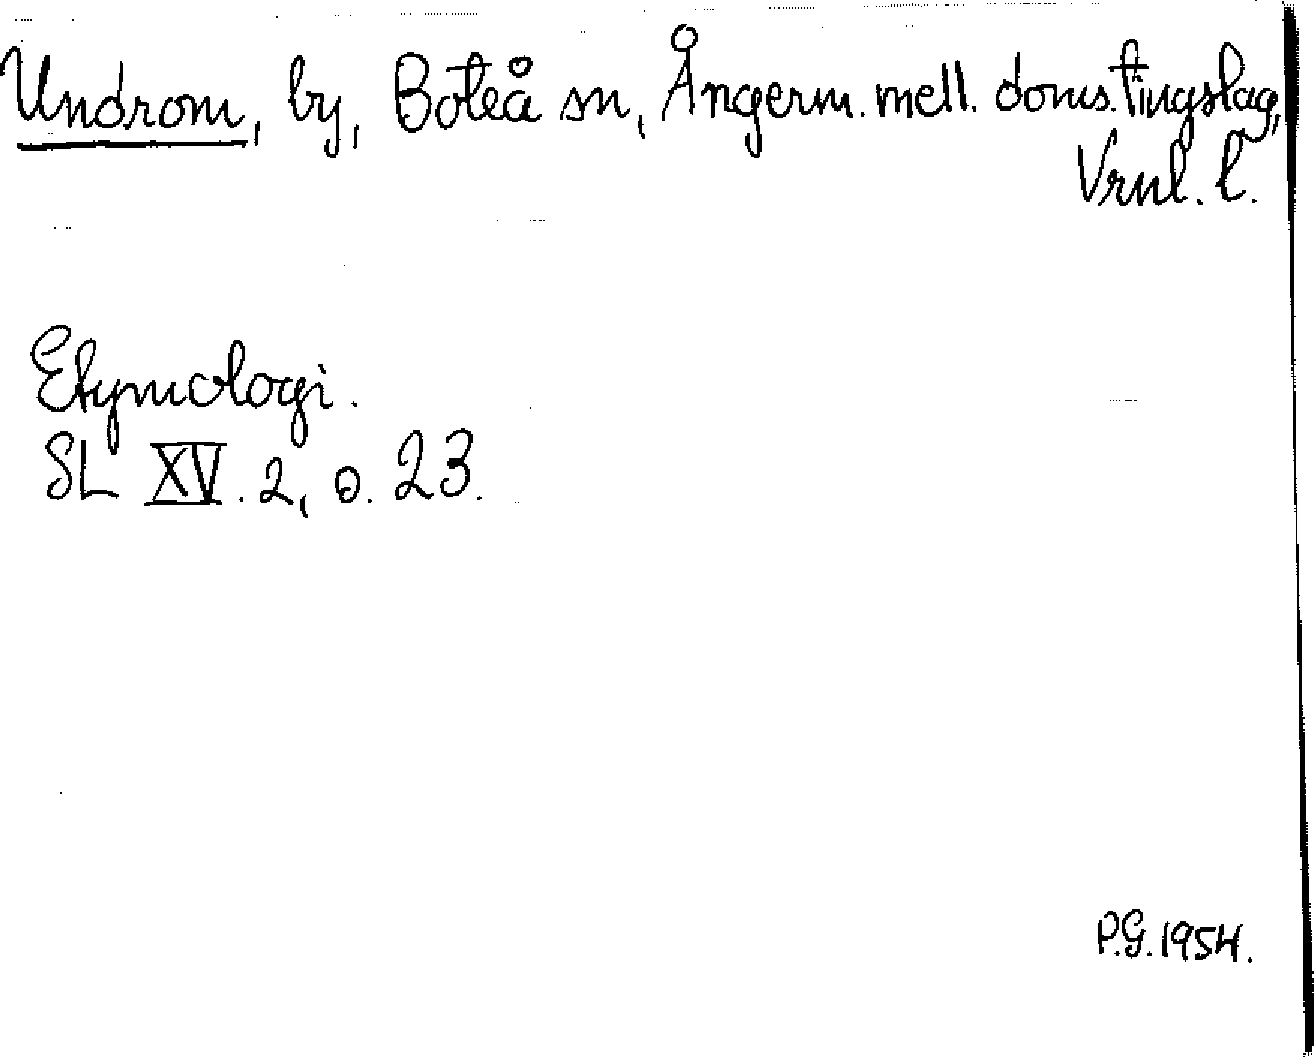 Undrom, by, Boteå sn, Ångerm. mell. doms. tingslag,
Vrnl. l.
Etymologi.
SL XV. 2, s. 23.
P.G. 1954.